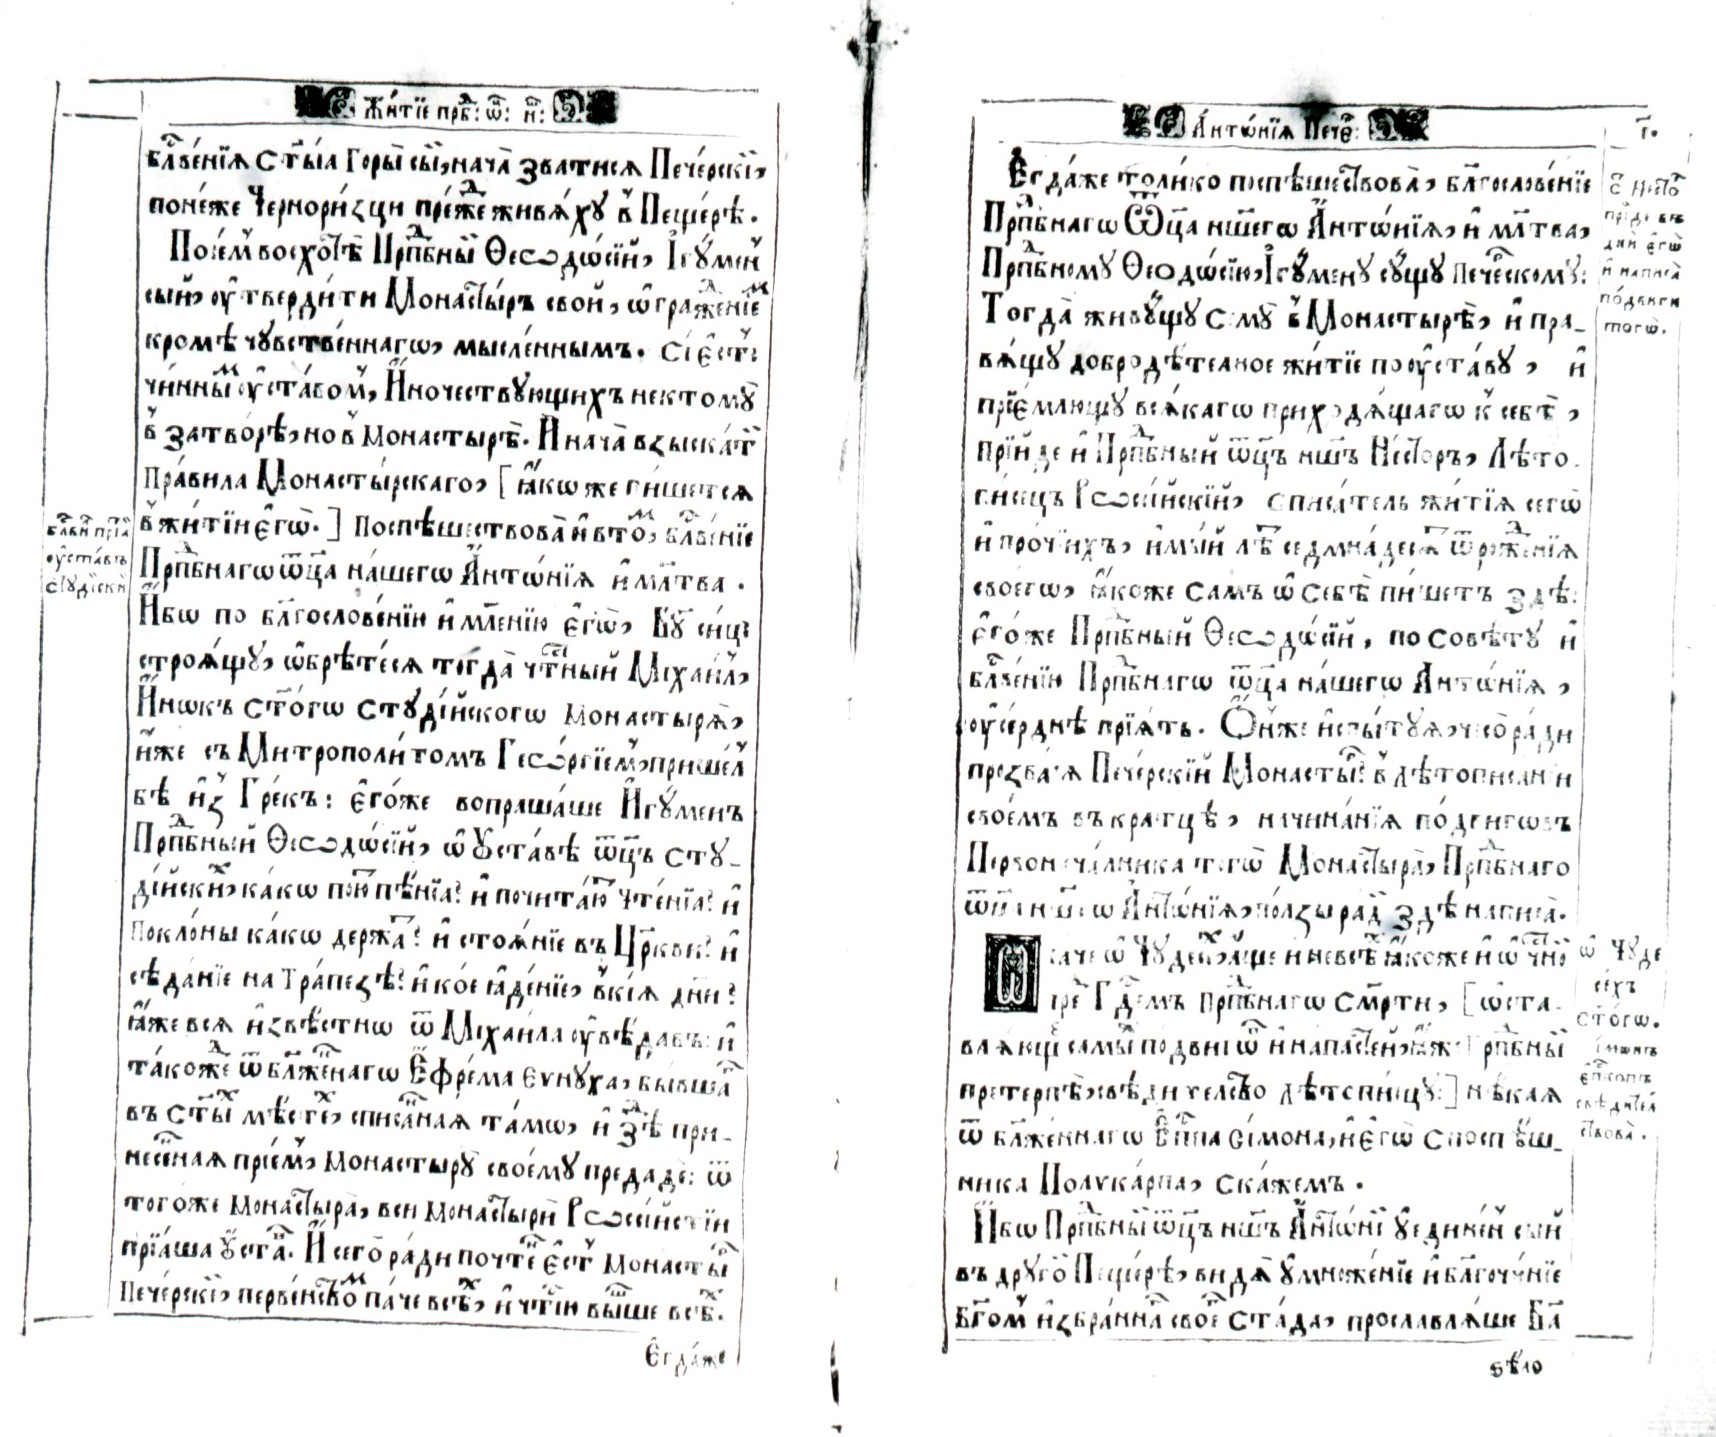 Житїе прпⷣб: ѿц: нⷲ:
блⷭ҇венїѧ ст҃ыѧ Горы̀ сы́и, нача̀ зватисѧ Пече́рскїй,
поне́же Черноризци пре́жⷣе живѧ́хꙋ в̾ Пеще́рѣ.
Пое́м̾ восхо́тѣ Прпⷣбныⷩ҇ Ѳеѡдѡ́сїй, Ігꙋ́мен̾
сый, ᲂу҆тверди́ти Монасты́ръ свой, ѡ҆граⷤде́нїеⷨ
кромѣ чꙋвс́твеннагѡ, мы́сленнымъ. сі́ е҆́ст̾:
чи́нныⷨ ᲂу҆ста́вом̾, И҆ночествꙋющихъ не ктомꙋ̀
в̾ затво́рѣ, но в̾ монастырѣ̀. И нача̀ взыска́ти
Пра́вила Монасты́рскаго, [ ꙗ҆́коже пи́шетсѧ
в̾ жи́тїи е҆гѡ̀. ] поспѣшествова̀ и҆ в то́ⷨ, блⷭ҇ве́нїе
Прпⷣбнагѡ ѿц҃а на́шегѡ А҆нтѡ́нїѧ и҆ мл҃тва.
И҆́бѡ по блгⷭ҇ослове́нїи и҆ мл҃е́нїю е҆гѡ̀, Бг҃ꙋ си́це
строѧ́щꙋ, ѡ҆брѣ́тесѧ тогда̀ чтⷭ҇ный Міхаи́л̾,
И҆́нокъ ст҃о́гѡ стꙋді́йскогѡ монастырѧ̀,
и҆́же съ Митрополи́томъ Гео́ргїем̾, прише́л̾
бѣ и҆з̾ Гре́къ: е҆го́же вопраша́ше И҆гꙋ́менъ
Прпⷣбный Ѳеѡдѡ́сїй, ѡ҆ ᲂу҆ста́вѣ ѿц҃ъ стꙋ-
ді́йскиⷯ, ка́кѡ пою́ⷮ пѣ́нїа? и҆ почита́юⷮ чте́нїа? и҆
Покло́ны ка́кѡ держа́ⷮ? и҆ стоѧ́нїе въ Цр҃кви? и҆
сѣда́нїе на Тра́пезѣ? и҆ ко́е ꙗ҆де́нїе, в̾ кїѧ дн҃и?
ꙗ҆́же всѧ и҆звѣ́стнѡ ѿ Міхаи́ла ᲂу҆вѣ́давъ: и҆
та́коⷤде ѿ блаⷤе́ннагѡ Е҆фре́ма е҆внꙋ́ха, бы́вшаⷢ
въ ст҃ы́ⷯ мѣ́стеⷯ, спи́саⷩ҇наѧ та́мѡ, и҆ здⷣѣ при-
несе́ⷩ҇наѧ прїе́м̾, монастырꙋ̀ своемꙋ̀ предадѐ: ѿ
тогѡ́же Монастырѧ̀, вси монастырѝ Рѡссі́йстїи
прїѧ́ша ᲂу҆ста́ⷡ. И҆ сего̀ ра́ди почте́ⷩ҇ е҆́ст̾ монасты́ⷬ
Пече́рскїй, пе́рвенствоⷨ па́че всѣ́ⷯ, и҆ чтⷭ҇ію вы́ше всѣ́ⷯ.
Е҆гда́же
блⷭ҇ви́ прїѧ̀
ᲂу҆ста́въ
стꙋді́йскїй
А҆нтѡ́нїѧ Печеⷬ҇:
г҃.
Е҆гда́же толи́ко поспѣшествова̀, блгⷭ҇ослове́нїе
Прпⷣбнагѡ Ѿц҃а нш҃егѡ А҆нтѡ́нїѧ, и҆ мл҃тва,
Прпⷣбномꙋ Ѳеѡдѡ́сїю, І҆гꙋ́менꙋ сꙋ́щꙋ Пече́рскомꙋ:
Тогда̀ живꙋ́щꙋ є҆мꙋ̀ в̾ Монастырѣ̀, и҆ пра-
вѧ́щꙋ добродѣ́телное жи́тїе по ᲂу҆ста́вꙋ, и҆
прїе́млющꙋ всѧ́кагѡ приходѧ́щагѡ к̾ себѣ̀,
прїи́де и҆ Прпⷣбный ѿц҃ъ нш҃ъ Не́сторъ, Лѣто-
пи́сецъ Рѡссі́йскїй, списа́тель жи́тїѧ сегѡ̀
и҆ про́чїихъ, и҆мы́й лѣ́ⷮ седмна́десѧⷮ ѿ роⷤде́нїѧ
своегѡ̀, ꙗ҆́коже самъ ѡ҆ себѣ̀ пи́шетъ здѣ:
е҆го́же Прпⷣбный Ѳеѡдѡ́сїй, по совѣ́тꙋ и҆
блⷭ҇ве́нїю Прпⷣбнагѡ ѿц҃а на́шегѡ А҆нтѡ́нїѧ,
ᲂу҆се́рднѣ прїѧ́тъ. Ѻ҆́нже и҆спы́тꙋѧ, чесо̀ ра́ди
прозва́сѧ Пече́рскїй Монасты́ⷬ: в̾ лѣтописа́нїи
свое́мъ въкра́тцѣ, начина́нїѧ по́двигѡвъ
Первонача́лника тогѡ̀ Монастырѧ̀, Прпⷣбнаго
ѿц҃а нш҃егѡ А҆нтѡ́нїѧ, по́лзы ра́дⷤи здѣ написа̀.
Паче ѡ҆ Чꙋдесѣ́ⷯ, а҆́ще и не всѣ́ⷯ, ꙗ҆́коже и҆ ѡ҆ чтⷭ҇но́й
преⷣ Гд҇емъ прпⷣбнагѡ сме́рти, [ ѡ҆ста-
влѧ́юще самыⷨ по́двигѡⷨ и҆ напа́стей, ꙗ҆́же Прпⷣбный
претерпѣ̀, свѣ́дителство лѣтопи́сцꙋ:] нѣ́каѧ
ѿ блаже́ннагѡ Е҆пⷭ҇кпа Сі́мона, и҆ е҆гѡ̀ споспѣ́ш-
ника Полꙋка́рпа, ска́жемъ.
И҆́бѡ Прпⷣбный ѿц҃ъ нш҃ъ А҆нтѡ́нїй ᲂу҆едине́н̾ сый
въ дрꙋго́й Пеще́рѣ, ви́дѧ ᲂу҆множе́нїе и҆ блгочи́нїе
Бг҃ом̾ и҆збра́ннаⷢ своеⷢ҇ ста́да, прославлѧ́ше Бг҃а
ст҃.: Не́сторъ
прїи́де въ
дни е҆гѡ̀
и҆ написа̀
по́двиги
тогѡ̀.
ѡ҆ Чꙋде-
се́хъ
ст҃о́гѡ.
Сі́мѡнъ
е҆пⷭ҇копъ
свѣ́дител-
ствова̀.
всѣ́ю